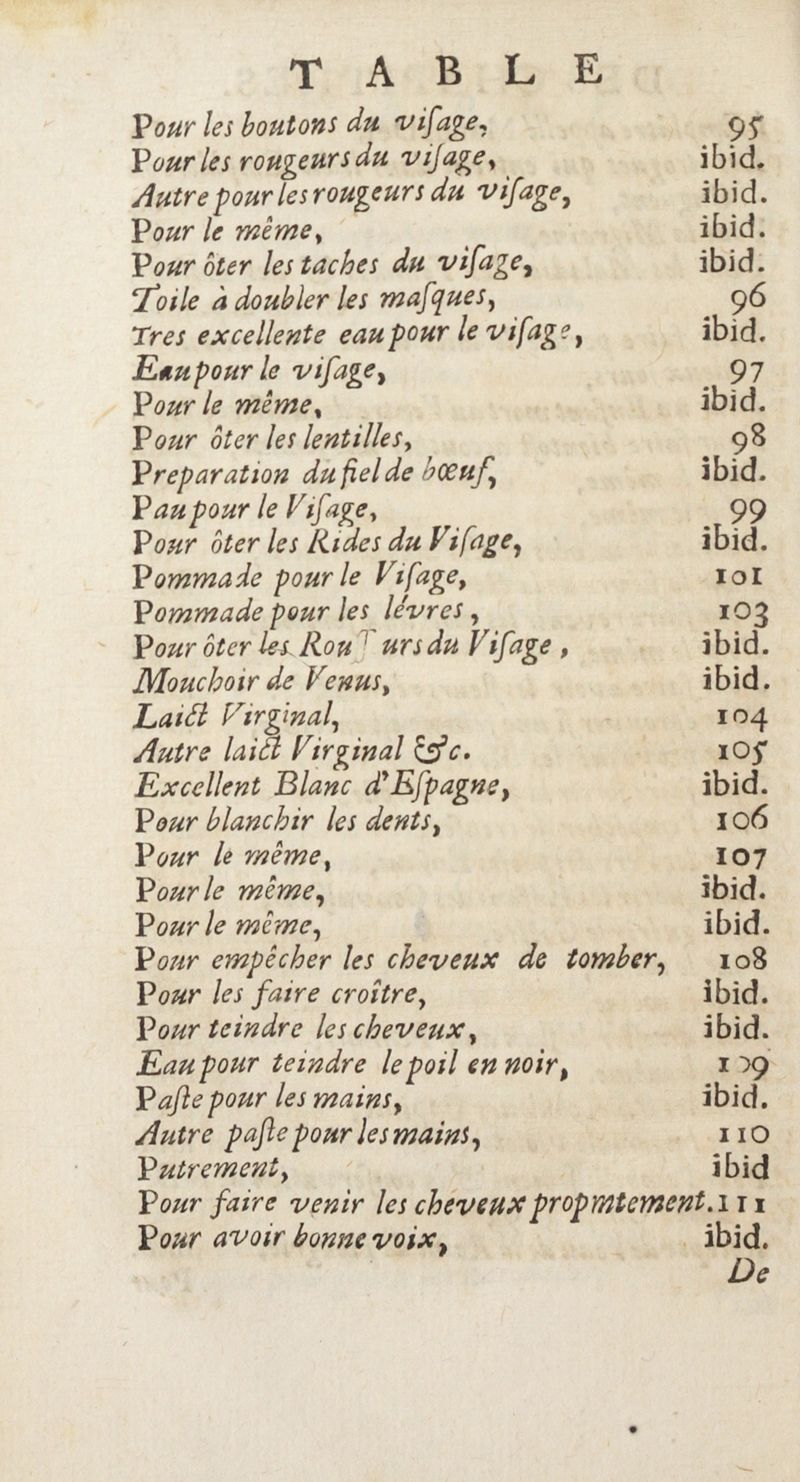 TABLE
Pour les boutons du viſage, 95
Pour les rougeurs du viſage, ibid.
Autre pour les rougeurs du viſage, ibid.
Pour le même, ibid.
Pour ôter les taches du viſage, ibid.
Toile à doubler les maſques, 96
Tres excellente eau pour le viſage, ibid.
Eau pour le viſage, 97
Pour le même, ibid.
Pour ôter les lentilles, 98
Preparation du fiel de bœuf, ibid.
Pau pour le Viſage, 99
Pour ôter les Rides du Viſage, ibid.
Pommade pour le Viſage, 101
Pommade pour les lévres, 103
Pour ôter les Rou urs du Viſage, ibid.
Mouchoir de Venus, ibid.
Laict Virginal, 104
Autre laict Virginal &c. 105
Excellent Blanc d'Eſpagne, ibid.
Pour blanchir les dents, 106
Pour le même, 107
Pour le même, ibid.
Pour le même, ibid.
Pour empêcher les cheveux de tomber, 108
Pour les faire croître, ibid.
Pour teindre les cheveux, ibid.
Eau pour teindre le poil en noir, 109
Paſte pour les mains, ibid.
Autre paſte pour les mains, 110
Putrement, ibid
Pour faire venir les cheveux propmtement. 111
Pour avoir bonne voix, ibid.
De